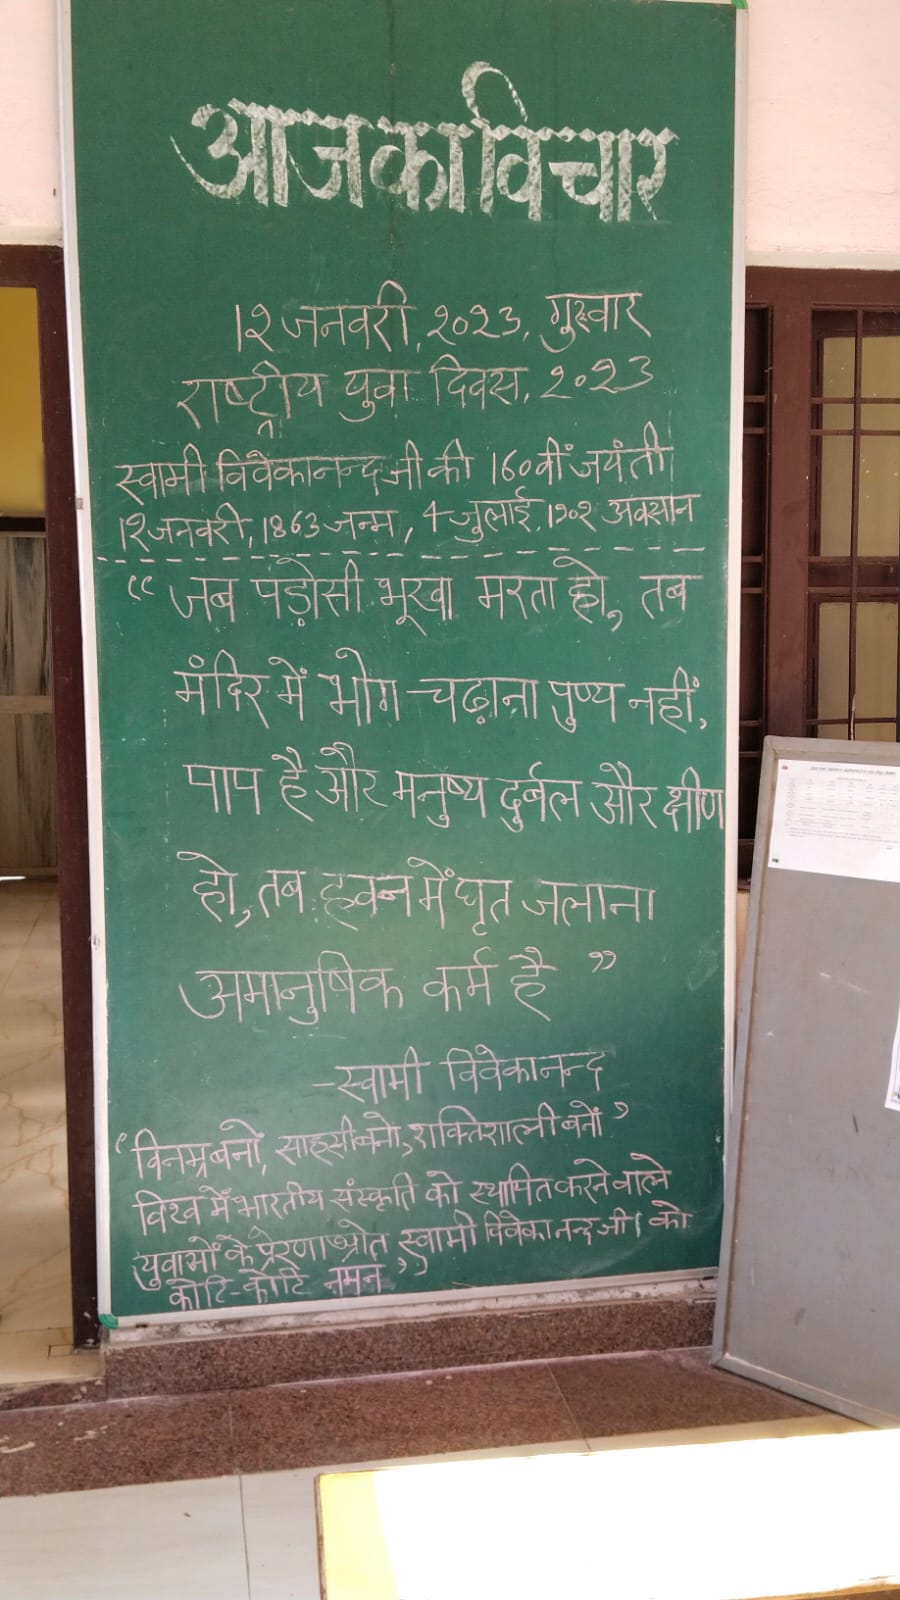 आज का विचार
१२ जनवरी, २०२३, गुरूवार
राष्ट्रीय युवा दिवस, २०२३
स्वामी विवेकानन्द जी की 160 वीं जयंती
१२ जनवरी, 1863 जन्म, 4 जुलाई, १९०२ अवसान
“ जब पड़ोसी भूखा मरता हो, तब
मंदिर में भोग चढ़ाना पुण्य नहीं,
पाप है और मनुष्य दुर्बल और क्षीण
हो, तब हवन में घृत जलाना
अमानुषिक कर्म है ”
-स्वामी विवेकानन्द
“विनम्र बनो, साहसी बनो, शक्तिशाली बनों”
विश्व में भारतीय संस्कृति को स्थापित करने वाले
युवाओं के प्रेरणाश्रोत स्वामी विवेकानन्द जी। को
कोटि-कोटि नमन ”